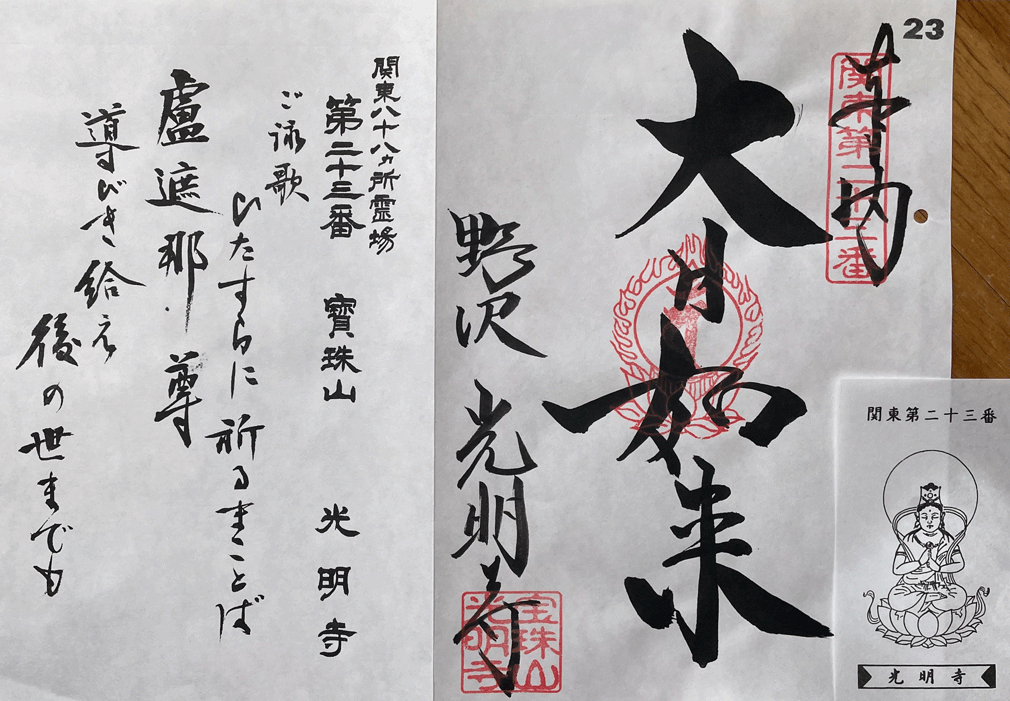 関東八十八ヵ所霊場
第二十三番 寶珠山 光明寺
ご詠歌
ひたすらに 祈るまことば
盧遮那尊
導びき給え
後の世までも
23
奉納
関東第二十三番
大日如来
野沢 光明寺
宝珠山
光明寺
関東第二十三番
光明寺